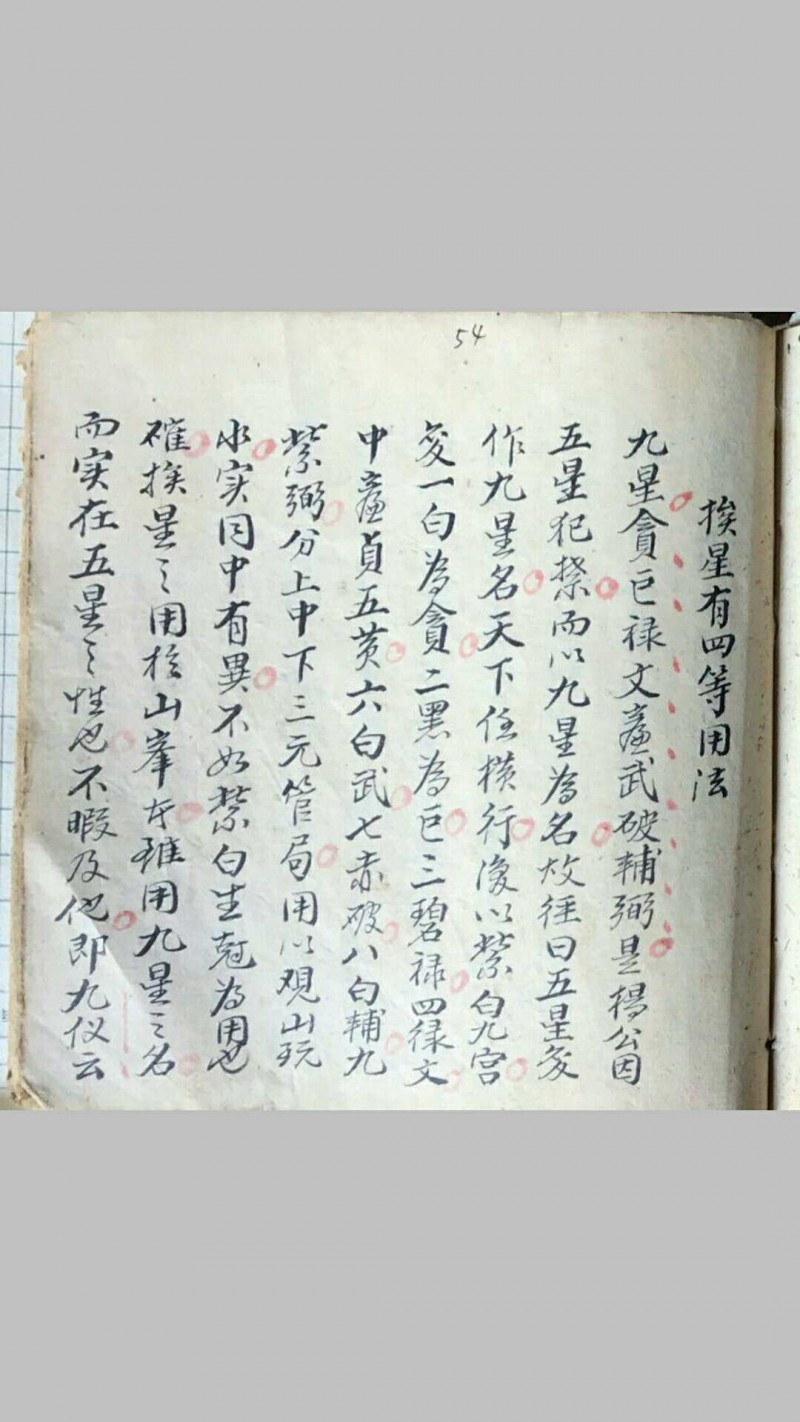 54
挨星有四等用法
九星貪巨禄文廉武破輔弼是楊公因
五星犯禁而以九星為名故徑曰五星变
作九星名天下任横行後以紫白九宫
变一白為貪二黑為巨三碧禄四禄文
中廉貞五黄六白武七赤破八白輔九
紫弼分上中下三元管局用以观山玩
水实同中有異不如紫白生尅為用也
確挨星之用於山峯本雖用九星之名
而实在五星之性也不暇及他即九仪云